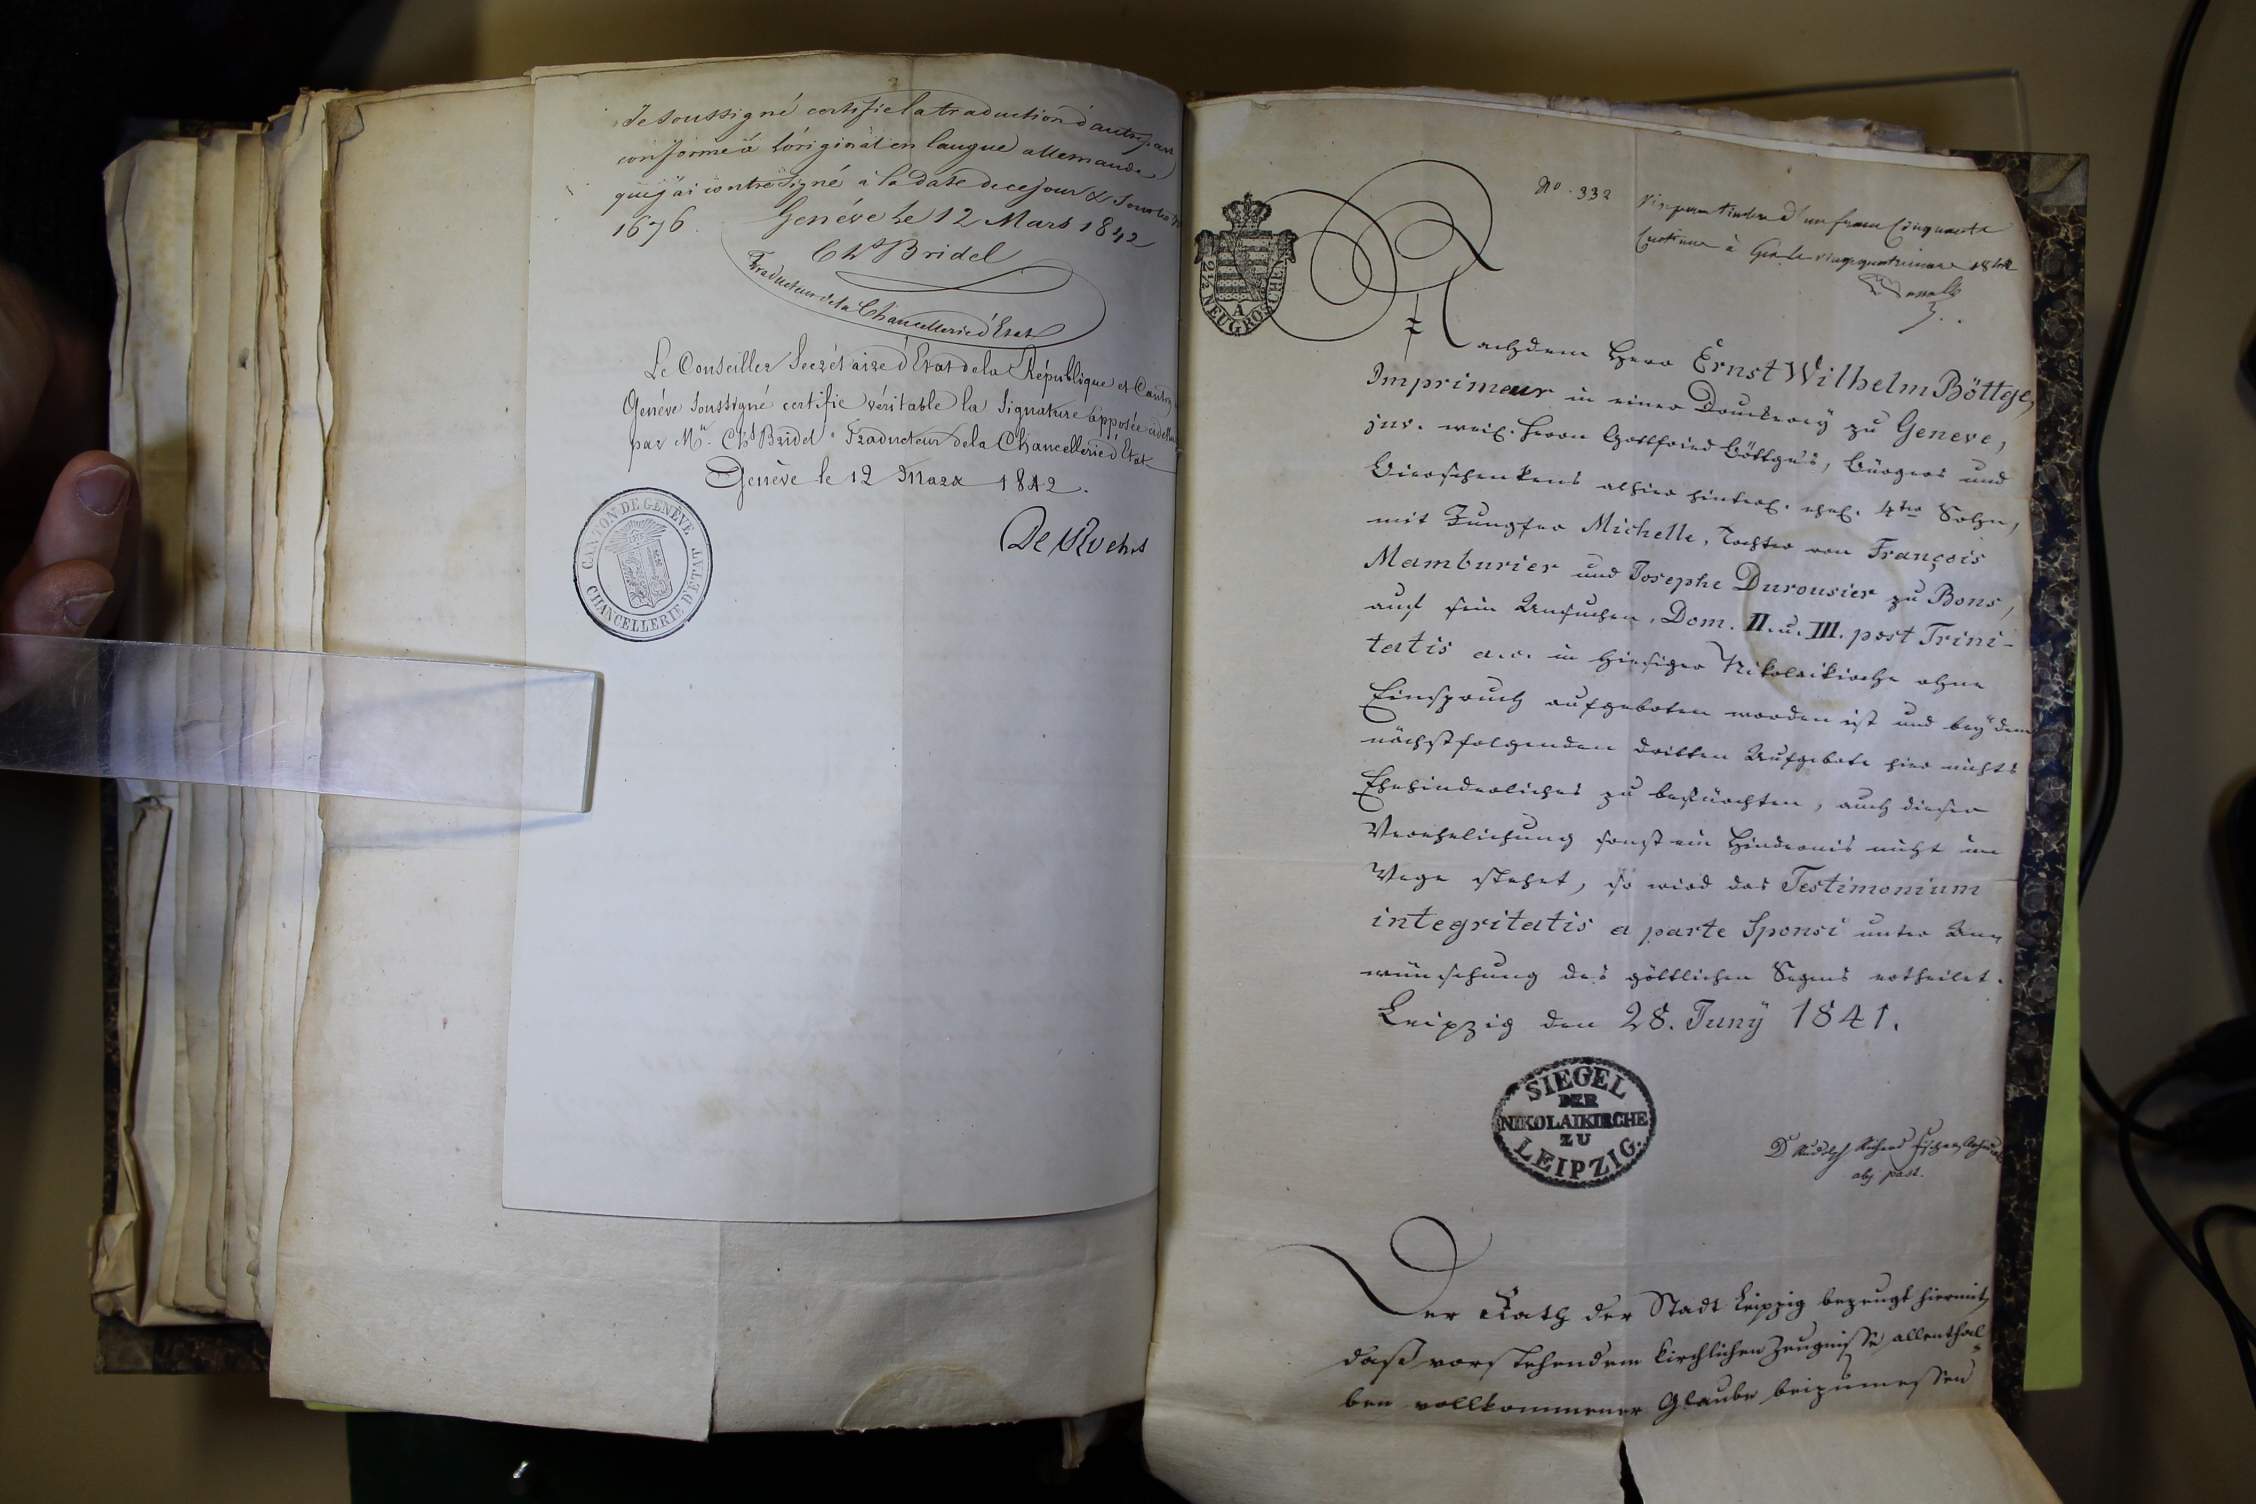 Je soussigné certifie la traduction d'autre part
conforme à l'original en langue allemande
que j'ai contresigné à la date de ce jour & sous le N°
1676. Genève le 12 Mars 1842
Ch.s Bridel
Traducteur de la Chancellerie d'Etat
Le Conseiller Secrétaire d'Etat de la République et Canton
Genève soussigné certifie véritable la signature apposée
par Mr. Chs Bridel Traducteur de la Chancellerie d'Etat
Genève le 12 Mars 1842.
CANTON DE GENÈVE
CHANCELLERIE D'ÉTAT
No. 332
Visé pour timbre d'un franc cinquante
centimes à Gex le vingt quatre mars 1842
2½ NEUGROSCHEN
A
Nachdem Herr Ernst Wilhelm Böttge,
Imprimeur in einer Druckerey zu Geneve,
juv. weil. Herrn Gottfried Böttge's, Bürgers und
Bierschenkens alhier hinterl. ehel. 4ter Sohn,
mit Jungfer Michelle, Tochter von François
Mamburier und Josephe Durousier zu Bons,
auf sein Ansuchen, Dom. II. u. III. post Trini-
tatis a.c. in hiesiger Nikolaikirche ohne
Einspruch aufgeboten worden ist und bey dem
nächstfolgenden dritten Aufgebote hier nichts
Ehehinderliches zu befürchten, auch dieser
Verehelichung sonst ein Hinderniß nicht im
Wege stehet, so wird das Testimonium
integritatis a parte Sponsi unter An-
wünschung des göttlichen Segens ertheilet.
Leipzig den 28. Juny 1841.
SIEGEL
DER
NIKOLAIKIRCHE
ZU
LEIPZIG.
Der Rath der Stadt Leipzig bezeugt hiermit,
daß vorstehendem kirchlichen Zeugnisse allenthal
ben vollkommener Glaube beizumessen